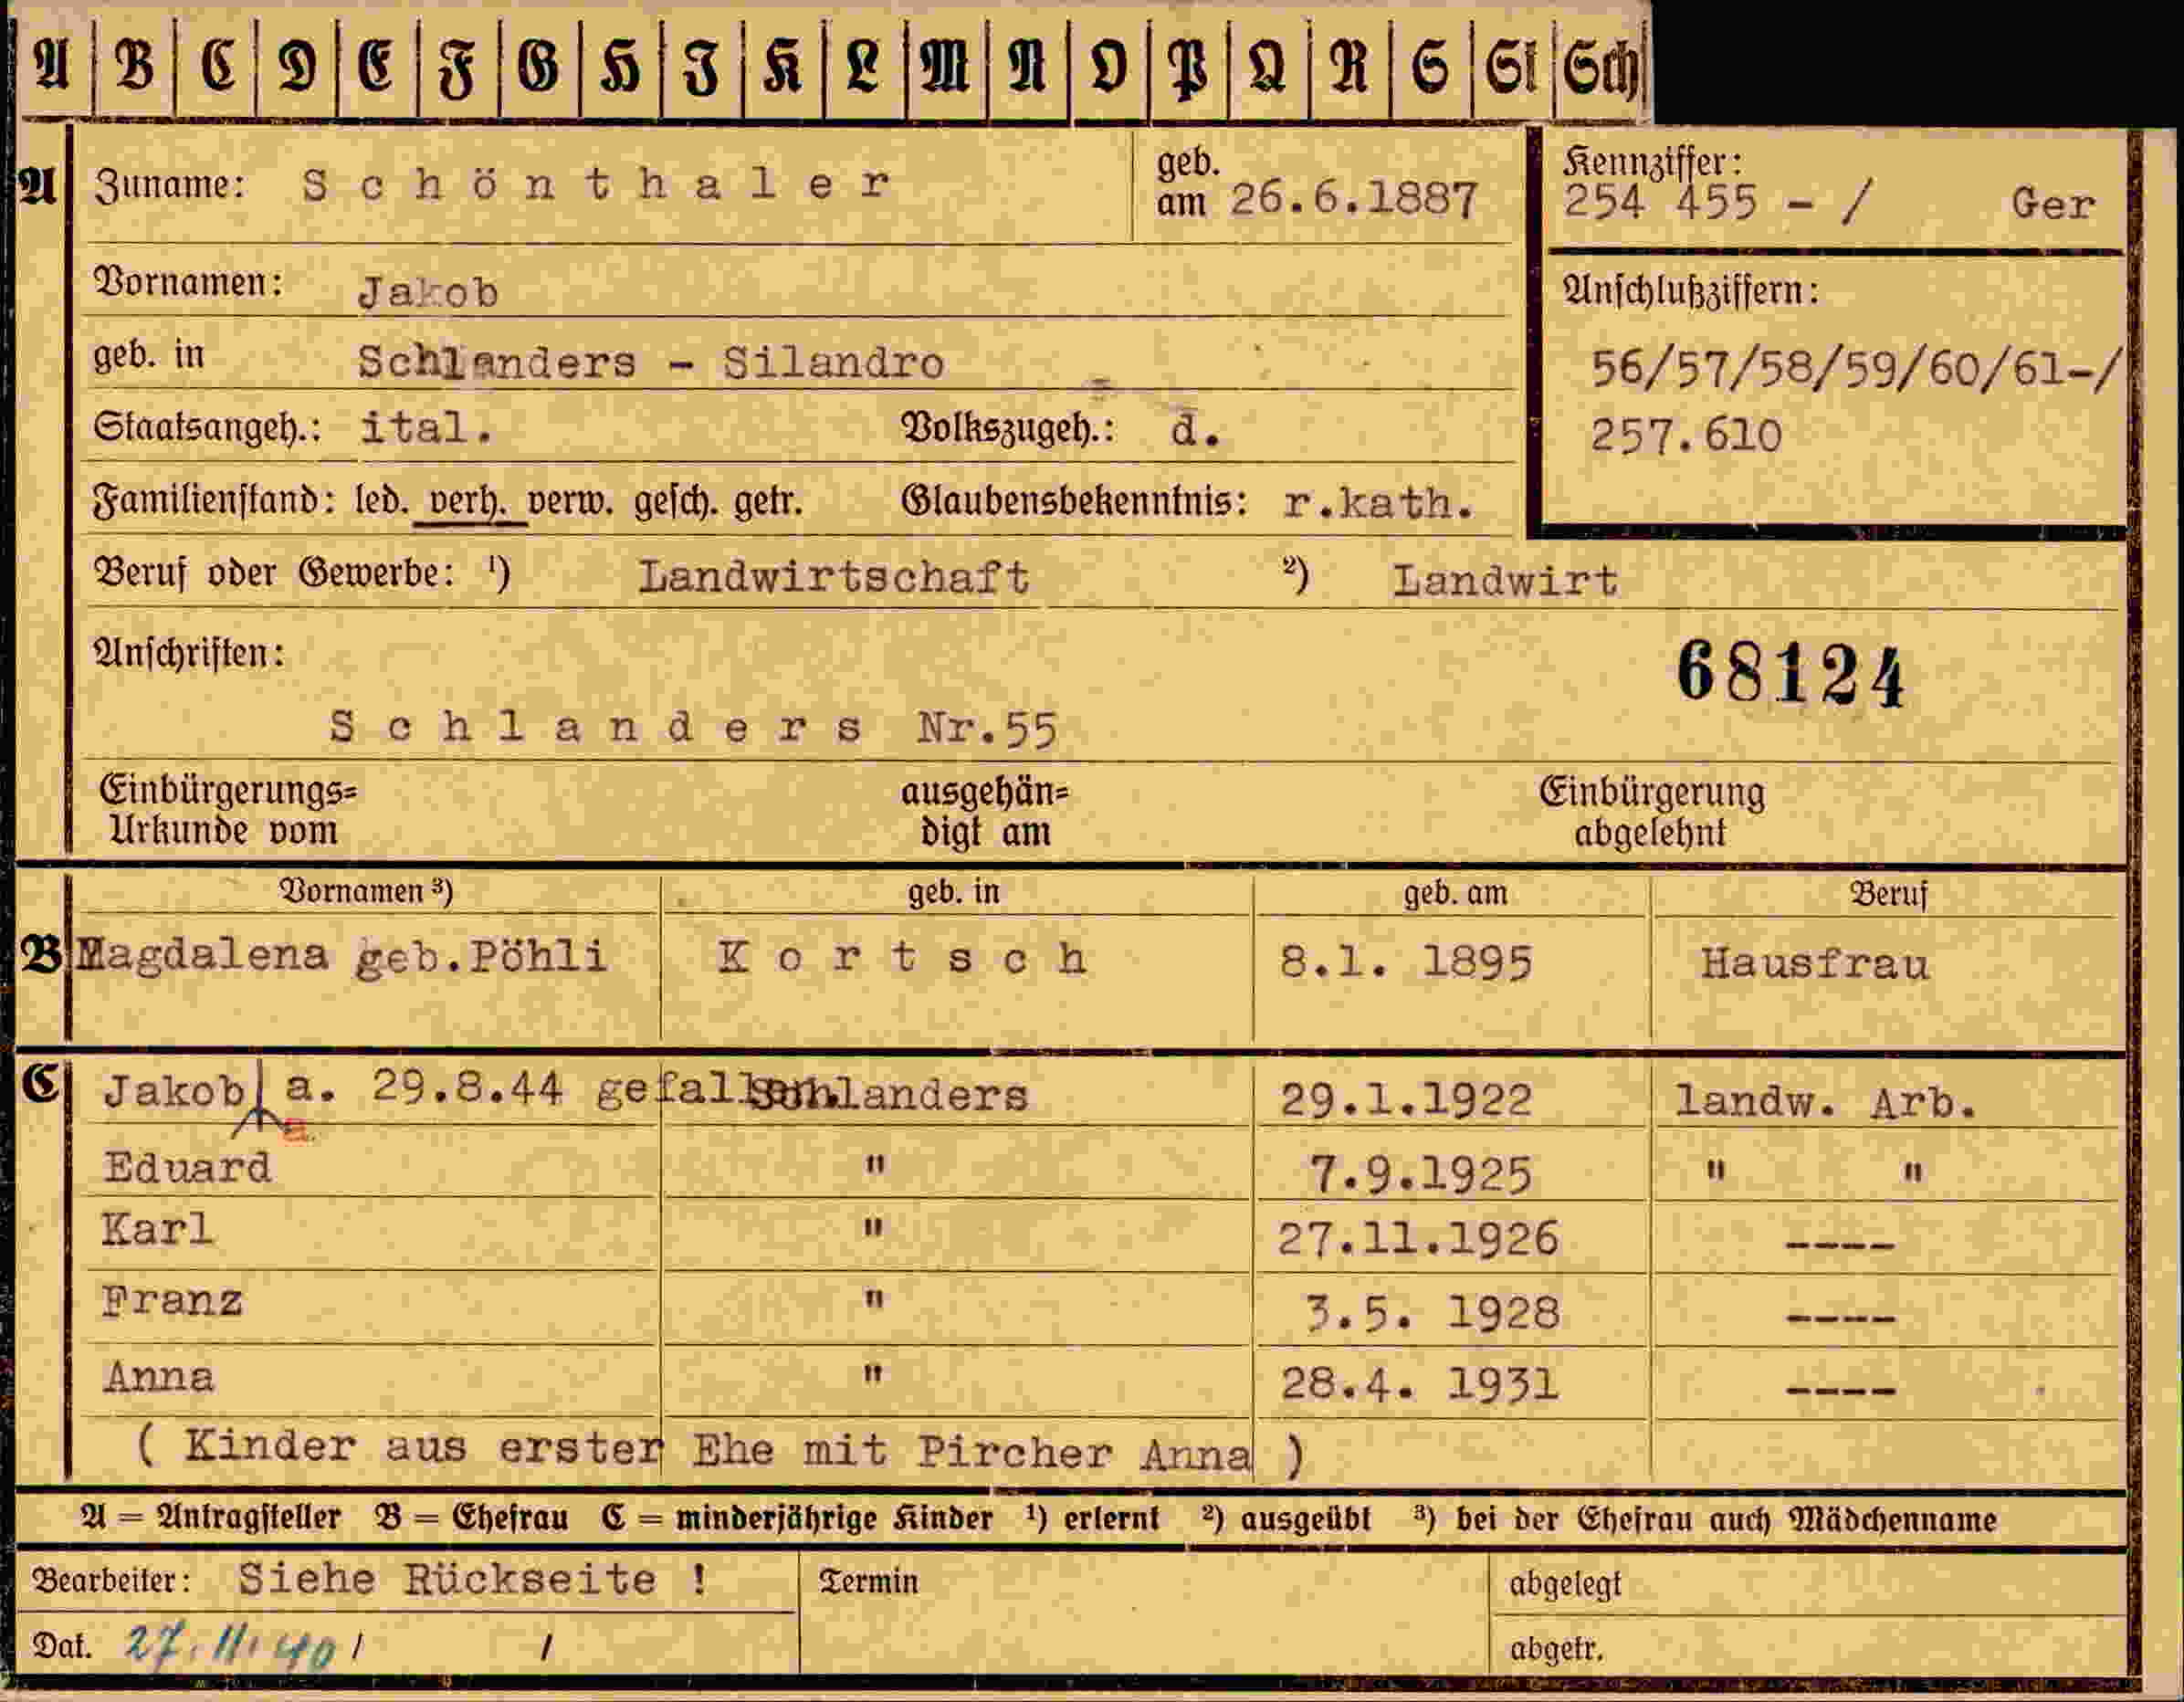 A B C D E F G H I K L M N O P Q R S St Sch
A Zuname: Schönthaler geb. am 26.6.1887
Kennziffer: 254 455 - / Ger
Vornamen: Jakob
Anschlußziffern:
geb. in Schlanders - Silandro
56/57/58/59/60/61-/
Staatsangeh.: ital. Volkszugeh.: d.
257.610
Familienstand: led. verh. verw. gesch. getr. Glaubensbekenntnis: r.kath.
Beruf oder Gewerbe: ¹) Landwirtschaft ²) Landwirt
Anschriften:
68124
Schlanders Nr.55
Einbürgerungs= ausgehän= Einbürgerung
Urkunde vom digt am abgelehnt
Vornamen ³) geb. in geb. am Beruf
B Magdalena geb.Pöhli Kortsch 8.1. 1895 Hausfrau
C Jakob a. 29.8.44 gefallen. Schlanders 29.1.1922 landw. Arb.
a
Eduard " 7.9.1925 " "
Karl " 27.11.1926 ----
Franz " 3.5. 1928 ----
Anna " 28.4. 1931 ----
( Kinder aus erster Ehe mit Pircher Anna )
A = Antragsteller B = Ehefrau C = minderjährige Kinder ¹) erlernt ²) ausgeübt ³) bei der Ehefrau auch Mädchenname
Bearbeiter: Siehe Rückseite ! Termin abgelegt
Dat. 27.11.40 / / abgetr.